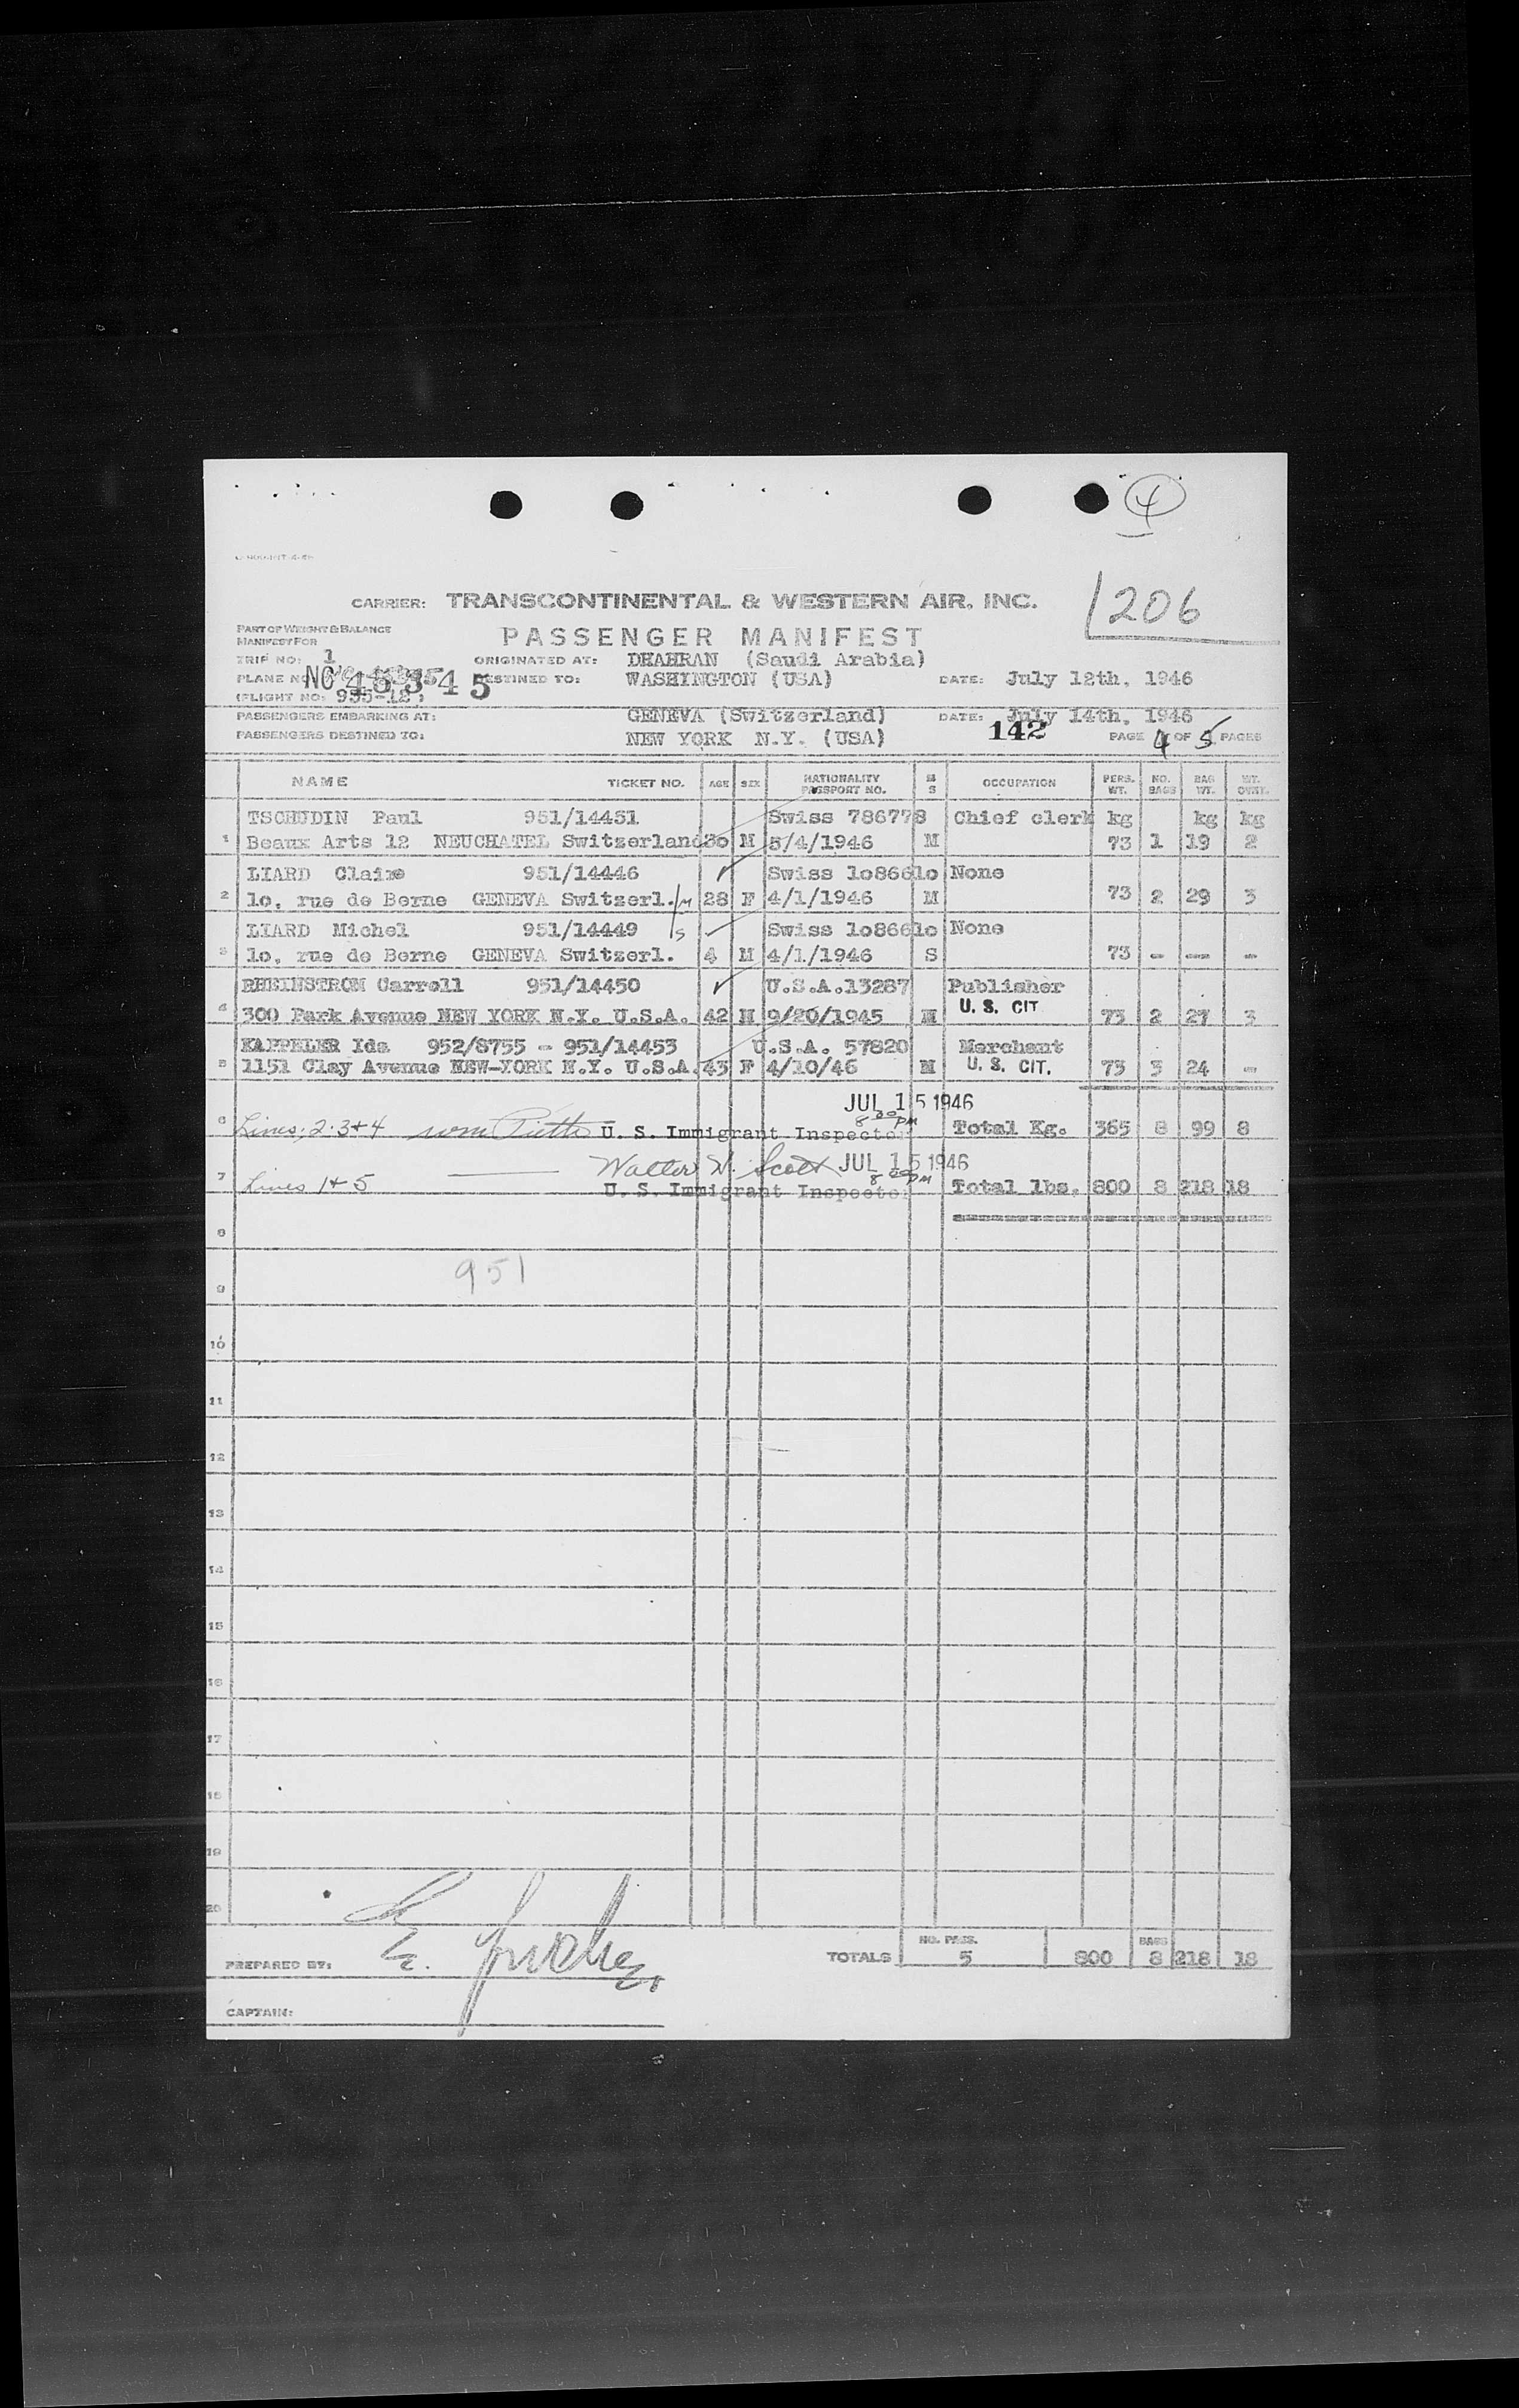 4
CARRIER: TRANSCONTINENTAL & WESTERN AIR, INC.
1206
PART OF WEIGHT & BALANCE
MANIFEST FOR
PASSENGER MANIFEST
TRIP NO: 1 ORIGINATED AT: DHAHRAN (Saudi Arabia)
PLANE NO: NC 45345 DESTINED TO: WASHINGTON (USA) DATE: July 12th, 1946
(FLIGHT NO: 955-12)
PASSENGERS EMBARKING AT: GENEVA (Switzerland) DATE: July 14th, 1946
PASSENGERS DESTINED TO: NEW YORK N.Y. (USA) 142 PAGE 4 OF 5 PAGES
NAME TICKET NO. AGE SEX NATIONALITY PASSPORT NO. M S OCCUPATION PERS. WT. NO. BAGS BAG WT. WT. OVWT.
TSCHUDIN Paul 951/14451 Swiss 786778 Chief clerk kg kg kg
1 Beaux Arts 12 NEUCHATEL Switzerland 3o M 5/4/1946 M 73 1 19 2
LIARD Claire 951/14446 Swiss 1o8661o None
2 1o, rue de Berne GENEVA Switzerl. M 28 F 4/1/1946 M 73 2 29 3
LIARD Michel 951/14449 S Swiss 1o8661o None
3 1o, rue de Berne GENEVA Switzerl. 4 M 4/1/1946 S 73 - -- -
RHEINSTROM Carroll 951/14450 U.S.A.13287 Publisher
4 300 Park Avenue NEW YORK N.Y. U.S.A. 42 M 9/20/1945 M U. S. CIT 73 2 27 3
KAPPELER Ida 952/8755 - 951/14453 U.S.A. 57820 Merchant
5 1151 Clay Avenue NEW-YORK N.Y. U.S.A. 43 F 4/10/46 M U. S. CIT. 73 3 24 -
JUL 15 1946
8 00 PM
6 Lines: 2-3+4 U. S. Immigrant Inspector Total Kg. 365 8 99 8
Walter N. Scott JUL 15 1946
8 00 PM
7 Lines 1+5 U. S. Immigrant Inspector Total lbs. 800 8 218 18
8
951
9
10
11
12
13
14
15
16
17
18
19
20
PREPARED BY: TOTALS NO. PASS. 5 800 BAGS 8 218 18
CAPTAIN: